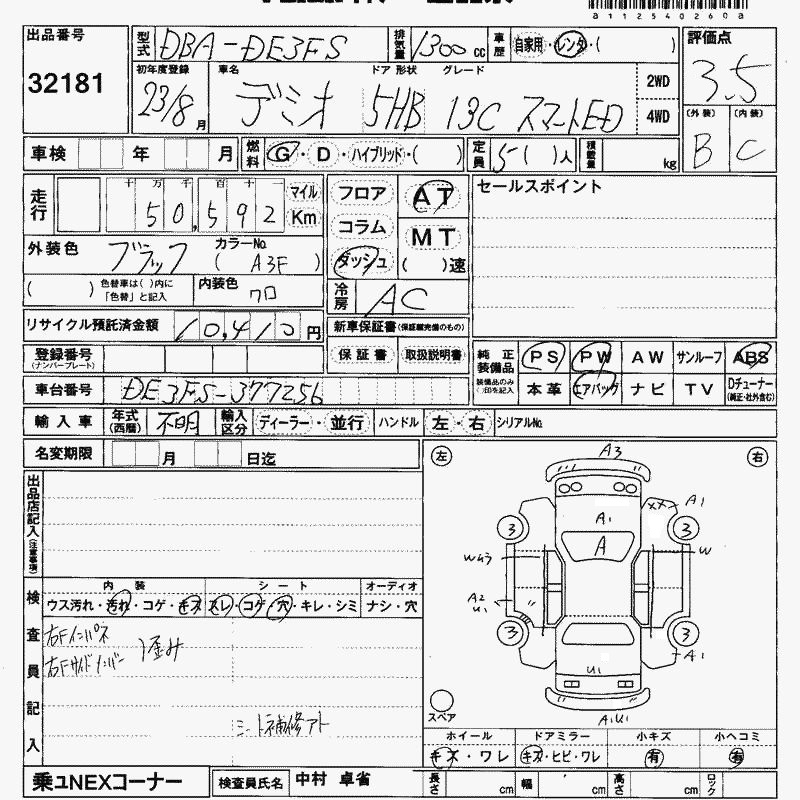 a112540260a
出品番号 32181
型式 DBA-DE3FS 排気量 1300cc 車歴 自家用・レンタ・( )
評価点 3.5
初年度登録 23/8月 車名 デミオ ドア 形状 5HB グレード 13C スマートED 2WD 4WD
(外装) B (内装) C
車検 年 月 燃料 G・D・ハイブリッド・( ) 定員 5( )人 積載量 kg
走行 十万千百十 50,592 マイル Km
フロア コラム ダッシュ AT MT ( )速
セールスポイント
外装色 ブラック カラーNo. ( A3F )
( ) 色替車は( )内に「色替」と記入 内装色 クロ
冷房 AC
リサイクル預託済金額 10,410円
新車保証書(保証継完備のもの)
保証書 取扱説明書
登録番号 (ナンバープレート)
純正装備品 PS PW AW サンルーフ ABS
装備品のみ○印を記入 本革 エアバッグ ナビ TV Dチューナー (純正・社外含む)
車台番号 DE3FS-377256
輸入車 年式(西暦) 不明 輸入区分 ディーラー・並行 ハンドル 左・右 シリアルNo.
名変期限 月 日迄
出品店記入(注意事項)
検査員記入
内装 シート オーディオ
ウス汚れ・汚れ・コゲ・キズ スレ・コゲ・穴・キレ・シミ ナシ・穴
右Fインパネ
右Fサイドメンバー 歪み
シート補修アト
左 右
A3
A1
A1
A
3 3
W小3 W
A2
U1
3 3
A1
U1
A1U1
スペア
ホイール ドアミラー 小キズ 小ヘコミ
キズ・ワレ キズ・ヒビ・ワレ 有 有
乗ュNEXコーナー 検査員氏名 中村 卓省 長さ cm 幅 cm 高さ cm ロック